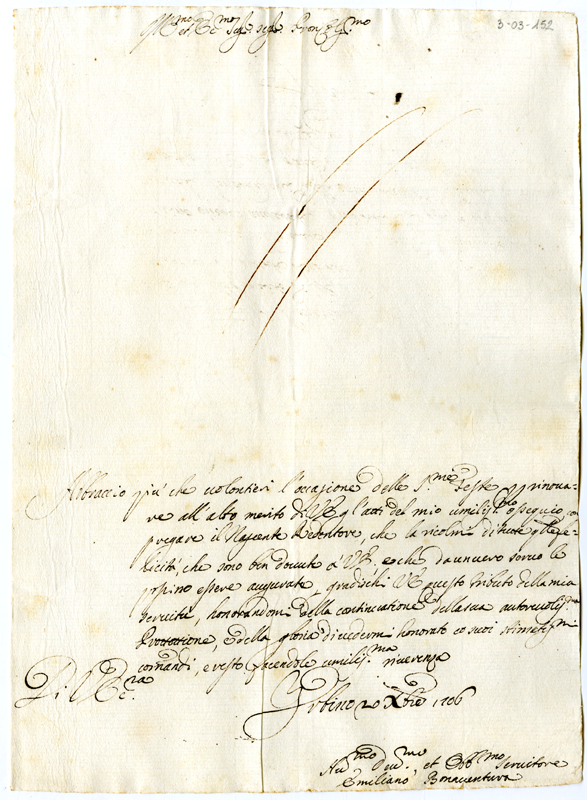 3-03-152
Ill.mo et Ecc.mo Sig.r Sig.r Pron. Col.mo
Abbraccio più che volontieri l'occasione delle S.me Feste p rinova-
re all'alto merito di VE gl'atti del mio umiliss.mo ossequio con
pregare il Nascente Redentore, che la ricolmi di tutte quelle fe-
licità, che sono ben dovute a VE, e che da un vero servo le
possino essere augurate, gradischi VE questo tributo della mia
servitù, honorandomi della continuatione della sua autorevoliss.ma
Protettione, e della gloria di vedermi honorato co suoi stimatiss.mi
comandi, e resto facendole umiliss.ma riverenza
Di VEc.za
Urbino 20 Xbre 1706
Hu.mo Dev.mo et Obb.mo Servitore
Emiliano Bonaventura